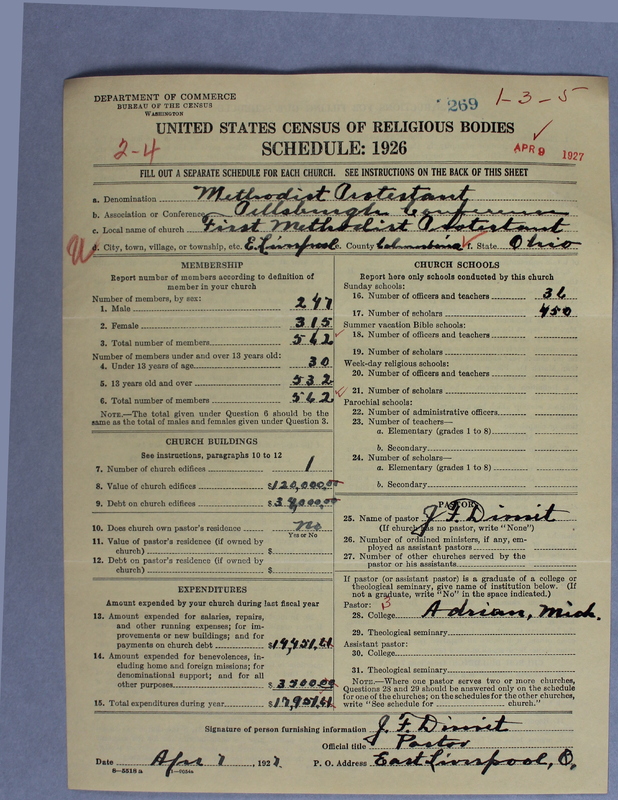 DEPARTMENT OF COMMERCE
BUREAU OF THE CENSUS
WASHINGTON
269
1-3-5
UNITED STATES CENSUS OF RELIGIOUS BODIES
SCHEDULE: 1926
2-4
APR 9 1927
FILL OUT A SEPARATE SCHEDULE FOR EACH CHURCH. SEE INSTRUCTIONS ON THE BACK OF THIS SHEET
a. Denomination Methodist Protestant
b. Association or Conference Pittsburgh Conference
c. Local name of church First Methodist Protestant
d. City, town, village, or township, etc. E. Liverpool e. County Columbiana f. State Ohio
MEMBERSHIP
Report number of members according to definition of
member in your church
Number of members, by sex:
1. Male 247
2. Female 315
3. Total number of members 562
Number of members under and over 13 years old:
4. Under 13 years of age 30
5. 13 years old and over 532
6. Total number of members 562
NOTE.—The total given under Question 6 should be the
same as the total of males and females given under Question 3.
CHURCH BUILDINGS
See instructions, paragraphs 10 to 12
7. Number of church edifices 1
8. Value of church edifices $120,000.00
9. Debt on church edifices
10. Does church own pastor's residence no
Yes or No
11. Value of pastor's residence (if owned by
church) $
12. Debt on pastor's residence (if owned by
church) $
EXPENDITURES
Amount expended by your church during last fiscal year
13. Amount expended for salaries, repairs,
and other running expenses; for im-
provements or new buildings; and for
payments on church debt $14,451.41
14. Amount expended for benevolences, in-
cluding home and foreign missions; for
denominational support; and for all
other purposes $3500.00
15. Total expenditures during year $17,951.41
CHURCH SCHOOLS
Report here only schools conducted by this church
Sunday schools:
16. Number of officers and teachers 36
17. Number of scholars 450
Summer vacation Bible schools:
18. Number of officers and teachers
19. Number of scholars
Week-day religious schools:
20. Number of officers and teachers
21. Number of scholars
Parochial schools:
22. Number of administrative officers
23. Number of teachers—
a. Elementary (grades 1 to 8)
b. Secondary
24. Number of scholars—
a. Elementary (grades 1 to 8)
b. Secondary
PASTOR
25. Name of pastor J. F. Dimit
(If church has no pastor, write "None")
26. Number of ordained ministers, if any, em-
ployed as assistant pastors
27. Number of other churches served by the
pastor or his assistants
If pastor (or assistant pastor) is a graduate of a college or
theological seminary, give name of institution below. (If
not a graduate, write "No" in the space indicated.)
Pastor: 3
28. College Adrian, Mich.
29. Theological seminary
Assistant pastor:
30. College
31. Theological seminary
NOTE.—Where one pastor serves two or more churches,
Questions 28 and 29 should be answered only on the schedule
for one of the churches; on the schedules for the other churches,
write "See schedule for church."
Signature of person furnishing information J. F. Dimit
Official title Pastor
Date Apr 7, 1927 P. O. Address East Liverpool, O.
8—5518 a